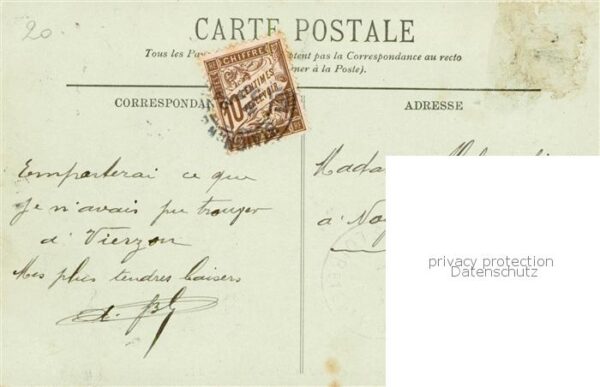 20
CARTE POSTALE
Tous les Pays tent pas la Correspondance au recto
ner à la Poste).
CHIFFRE
10 CENTIMES
CORRESPONDAN
ADRESSE
Emporterai ce que
je n'avais pu trouver
à Vierzon
Mes plus tendres baisers
Mada
à No
privacy protection
Datenschutz